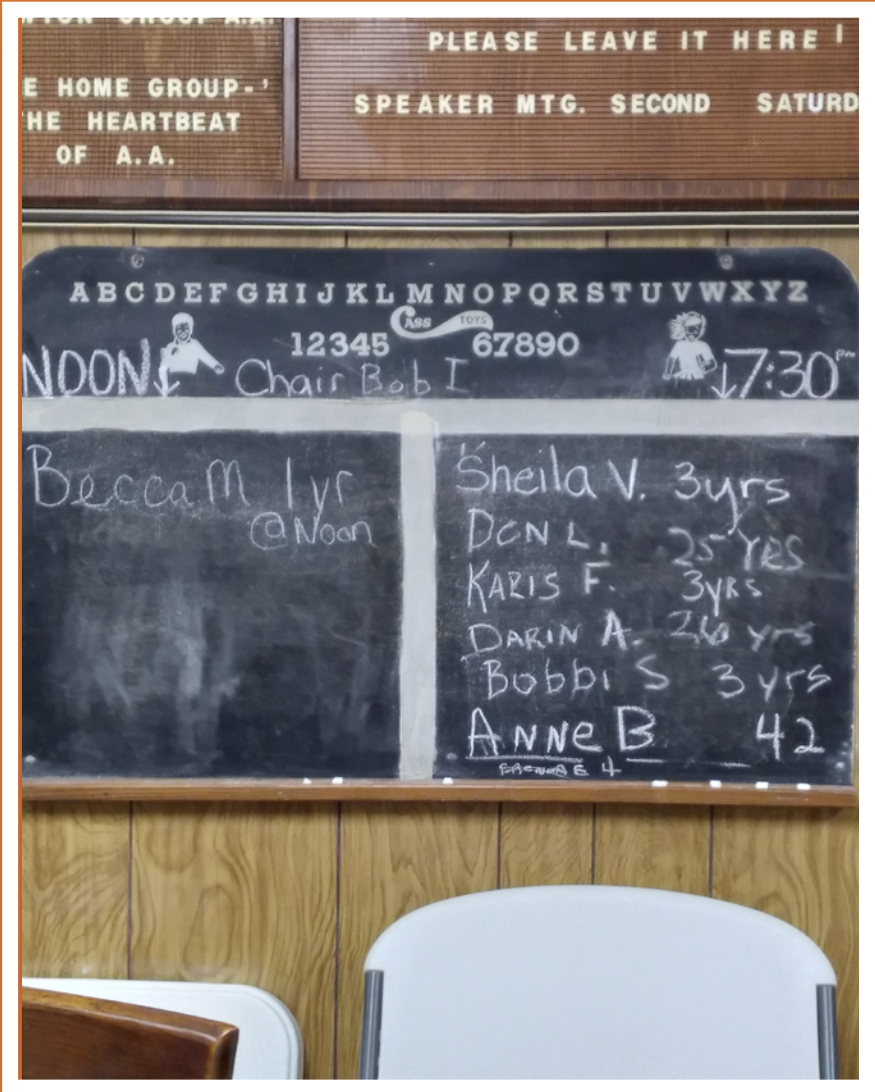 GROUP A.A.
E HOME GROUP-'
HE HEARTBEAT
OF A.A.
PLEASE LEAVE IT HERE !
SPEAKER MTG. SECOND SATURD
ABCDEFGHIJKLMNOPQRSTUVWXYZ
CASS TOYS
12345 67890
NOON Chair Bob I 7:30 pm
Becca M 1 yr
@Noon
Sheila V. 3yrs
DON L. 25 YRS
KARIS F. 3yRS
DARIN A. 26 yrs
Bobbi S 3 yrs
ANNE B 42